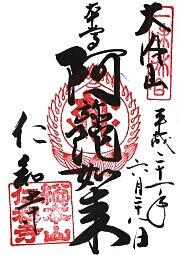 大内山
平成二十一年
六月二十八日
本尊
阿弥陀如来
仁和寺
総本山
仁和寺